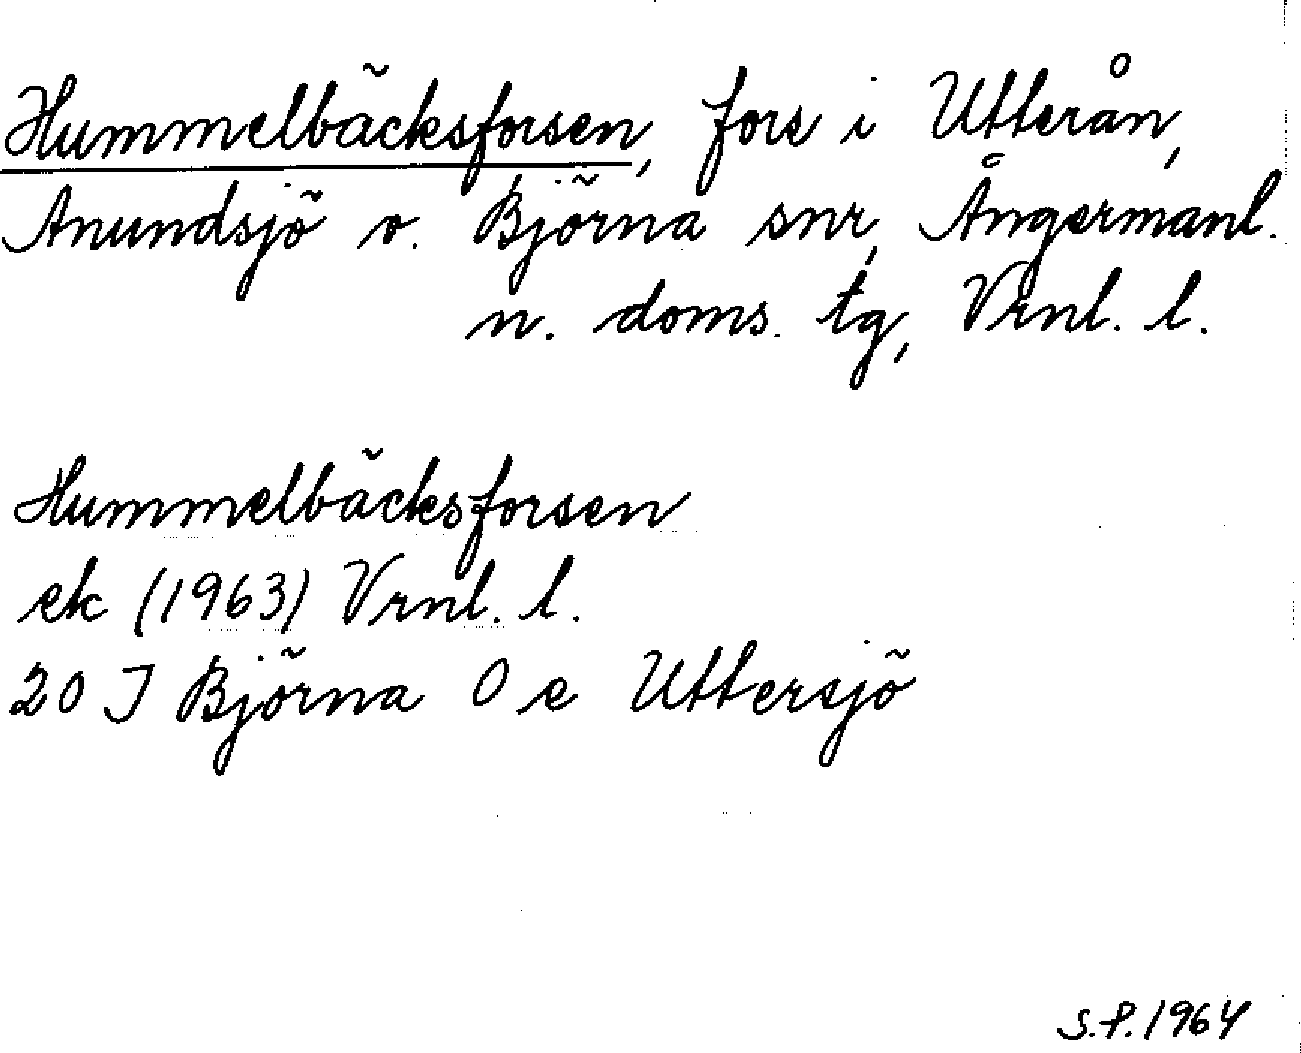 Hummelbäcksforsen, fors i Utterån,
Anundsjö o. Björna snr, Ångermanl.
n. doms. tg, Vrnl. l.
Hummelbäcksforsen
ek (1963) Vrnl. l.
20 J Björna 0 e Uttersjö
S.P. 1964